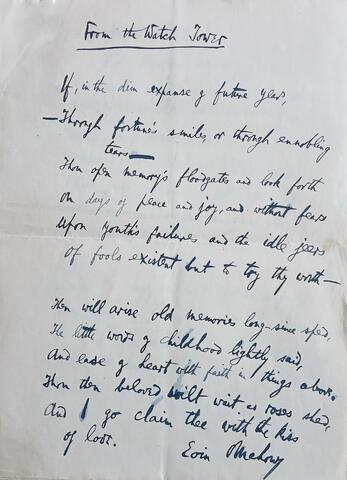 From the Watch Tower
If, in the dim expanse of future years,
— Through fortune's smiles, or through ennobling
tears —
Thou open memory's floodgates and look forth
on days of peace and joy, and without fears
Upon youth's failures and the idle jeers
Of fools existent but to try thy worth —
Then will arise old memories long-since sped,
The little words of childhood lightly said,
And ease of heart with faith in things above.
Thou then beloved wilt wait as roses shed,
And I go claim thee with the kiss
of love.
Eoin O'Mahony